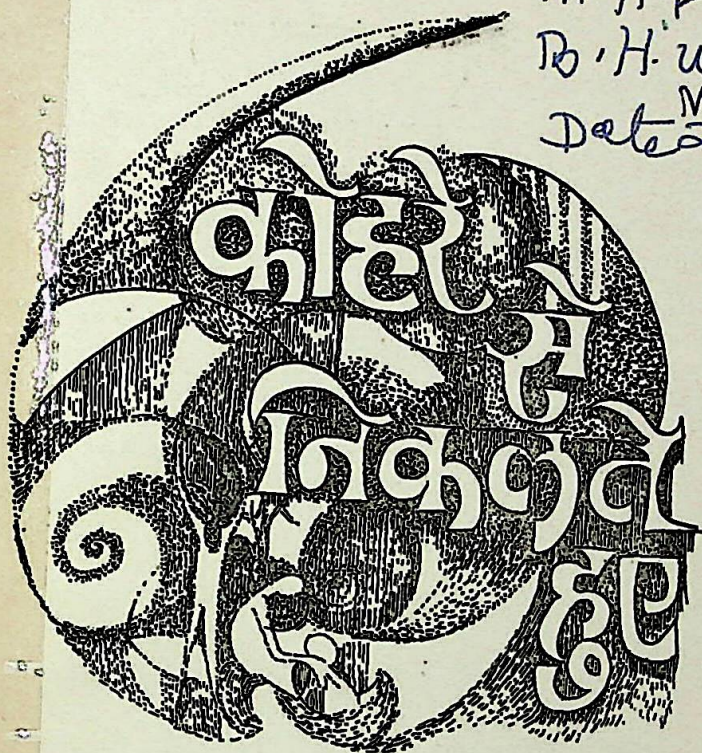 B.H.U
Dated
कोहरे
से
निकलते
हुए